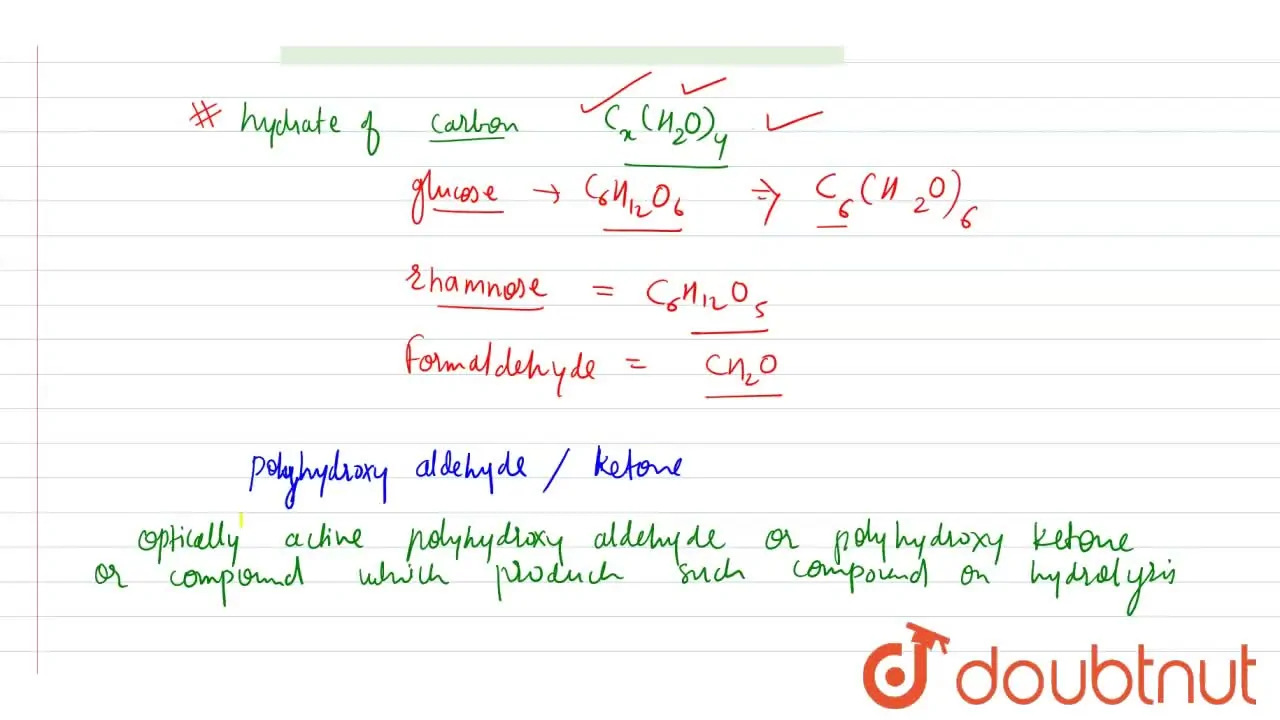 * hydrate of carbon Cₓ(H₂O)y
glucose → C₆H₁₂O₆ ⇒ C₆(H₂O)₆
rhamnose = C₆H₁₂O₅
Formaldehyde = CH₂O
polyhydroxy aldehyde / ketone
optically active polyhydroxy aldehyde or polyhydroxy ketone
or compound which product such compound on hydrolysis
doubtnut